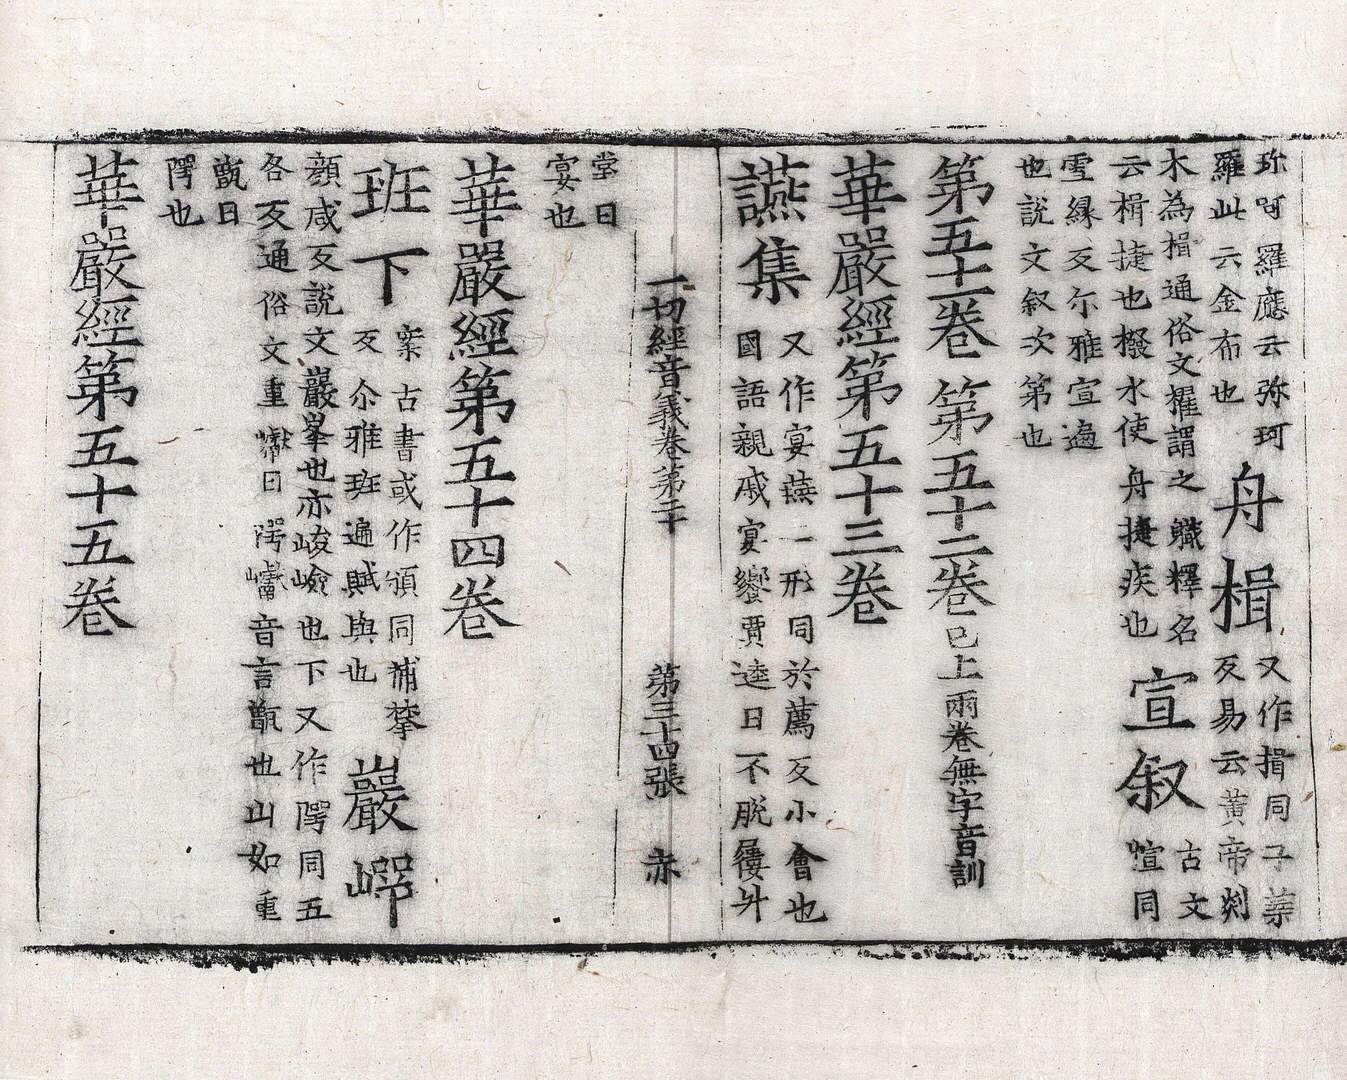 珎呵羅應云弥珂
羅此云金布也
舟楫
又作揖同子葉
反易云黄帝剡
木為楫通俗文櫂謂之檝釋名
云楫捷也撥水使舟捷疾也
宣叙
古文愃同
雪縁反尓雅宣遍
也說文叙次第也
第五十一卷 第五十二卷 已上兩卷無字音訓
華嚴經第五十三卷
讌集
又作宴燕二形同於薦反小會也
國語親戚宴饗賈逵曰不脫屨升
一切經音義卷第二十 第三十四張 赤
堂曰
宴也
華嚴經第五十四卷
班下
案古書或作頒同補㩯
反尒雅班遍賦與也
巖崿
顔咸反說文巖峯也亦峻嶮也下又作㟧同五
各反通俗文重巘曰㟧巘音言甑也山如重
甑曰
㟧也
華嚴經第五十五卷